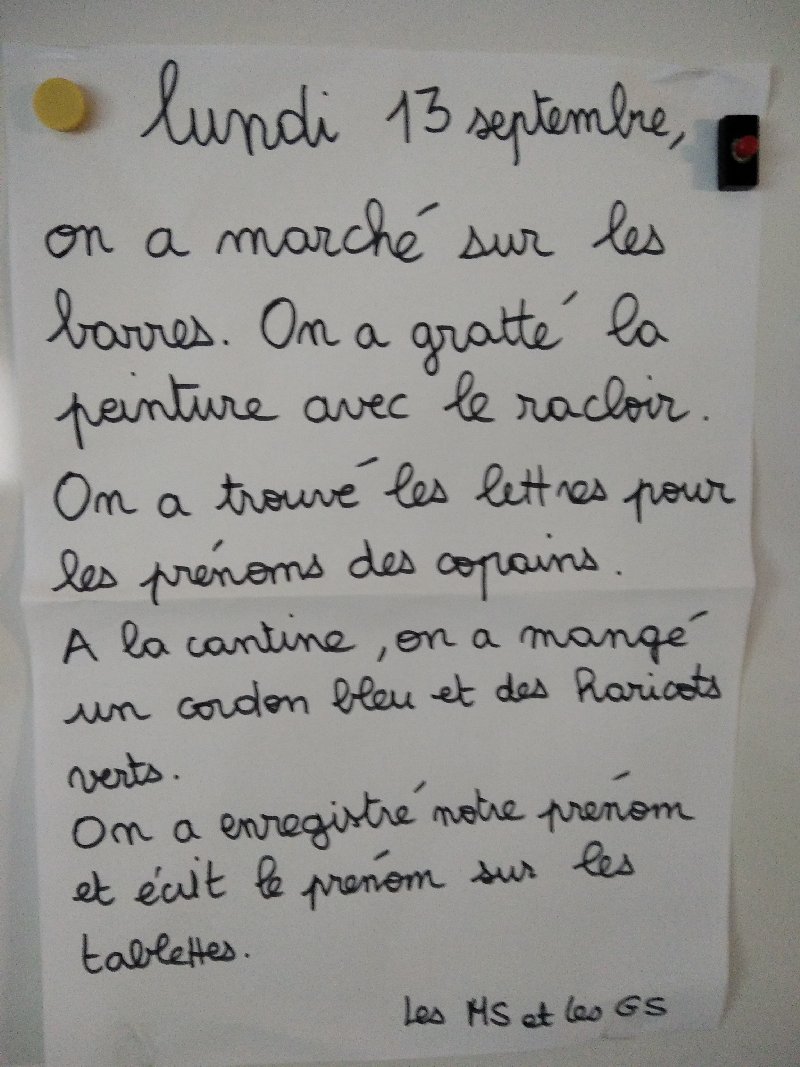 lundi 13 septembre,
on a marché sur les
barres. On a gratté la
peinture avec le racloir.
On a trouvé les lettres pour
les prénoms des copains.
A la cantine, on a mangé
un cordon bleu et des haricots
verts.
On a enregistré notre prénom
et écrit le prénom sur les
tablettes.
Les MS et les GS